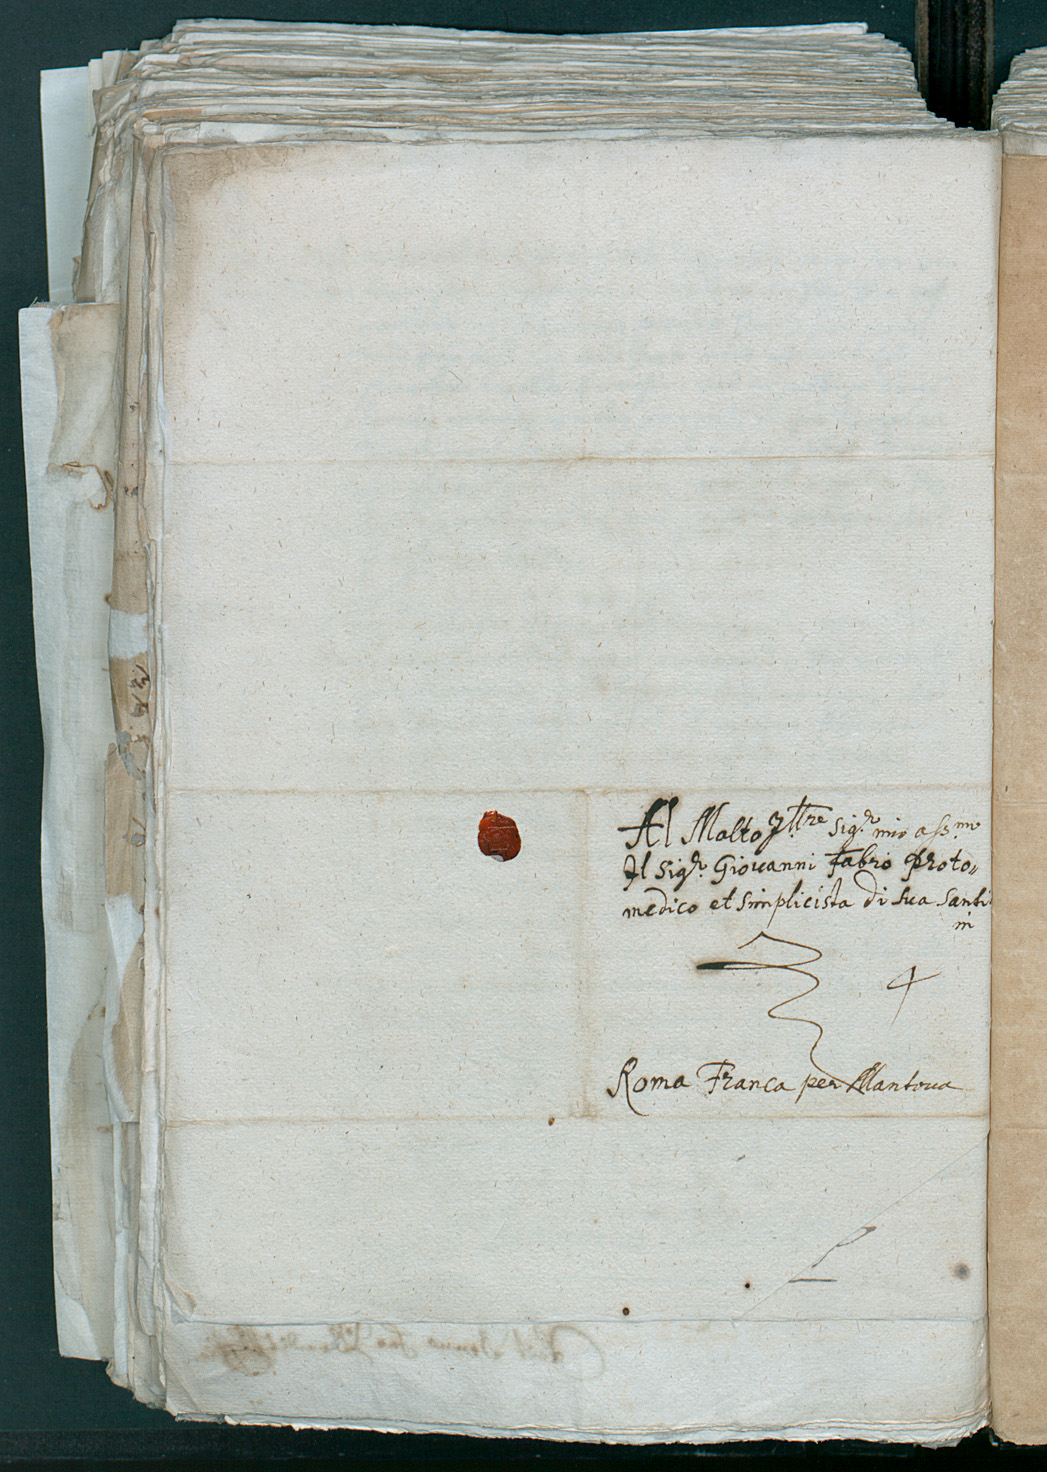 Al Molto Jll.tre Sig.r mio oss.mo
Jl Sig.r Giouanni Fabro Proto„
medico et simplicista di sua santi
in
4
Roma Franca per Mantoua